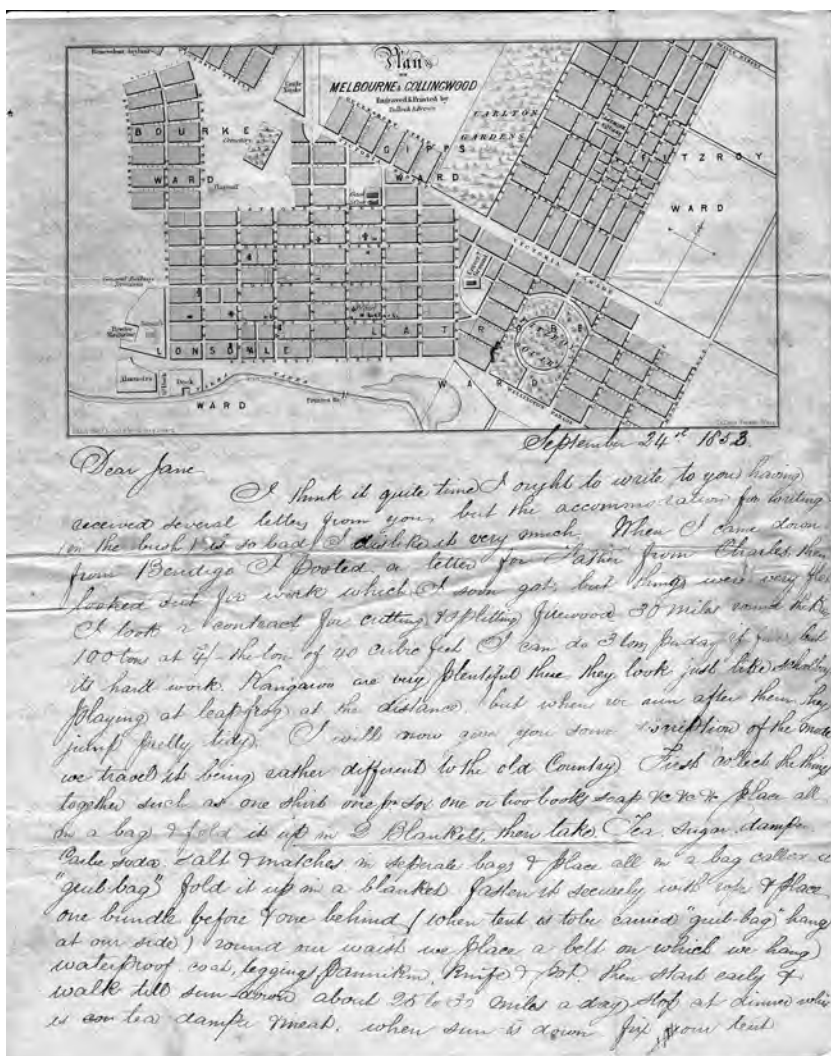 Plan
OF
MELBOURNE & COLLINGWOOD
Engraved & Printed by
BOURKE
WARD
Cemetery
GIPPS
WARD
CARLTON
GARDENS
FITZROY
WARD
VICTORIA PARADE
LA TROBE
WARD
LONSDALE
WARD
Dock
September 24th 1853.
Dear Jane
I think it quite time I ought to write to you having
received several letters from you, but the accommodation for writing
(in the bush) is so bad I dislike it very much. When I came down
from Bendigo I Posted a letter for Father from Charles, then
looked out for work which I soon got, but things were very flat
I took a contract for cutting & splitting firewood 30 miles round the
100 tons at 4/- the ton of 40 cubic feet I can do 3 tons per day if fine, but
its hard work. Kangaroo are very plentiful there they look just like schoolboys
playing at leapfrog at the distance, but when we run after them they
jump pretty tidy. I will now give you some description of the mode
we travel it being rather different to the old Country) First collect the things
together such as one shirt one pr sox one or two books soap &c &c &c place all
in a bag & fold it up in 2 Blankets, then take Tea, sugar, damper
Carbe soda, salt & matches in seperate bags & place all in a bag called a
"grub-bag") fold it up in a blanket fasten it securely with rope & place
one bundle before & one behind (when tent is to be carried "grub-bag" hang
at our side) round our waist we place a belt on which we hang
waterproof coat, leggings, Pannikin, Knife & Pot. then start early &
walk till sun-down about 25 to 30 miles a day, stop at dinner which
is tea damper & meat, when sun is down fix your tent